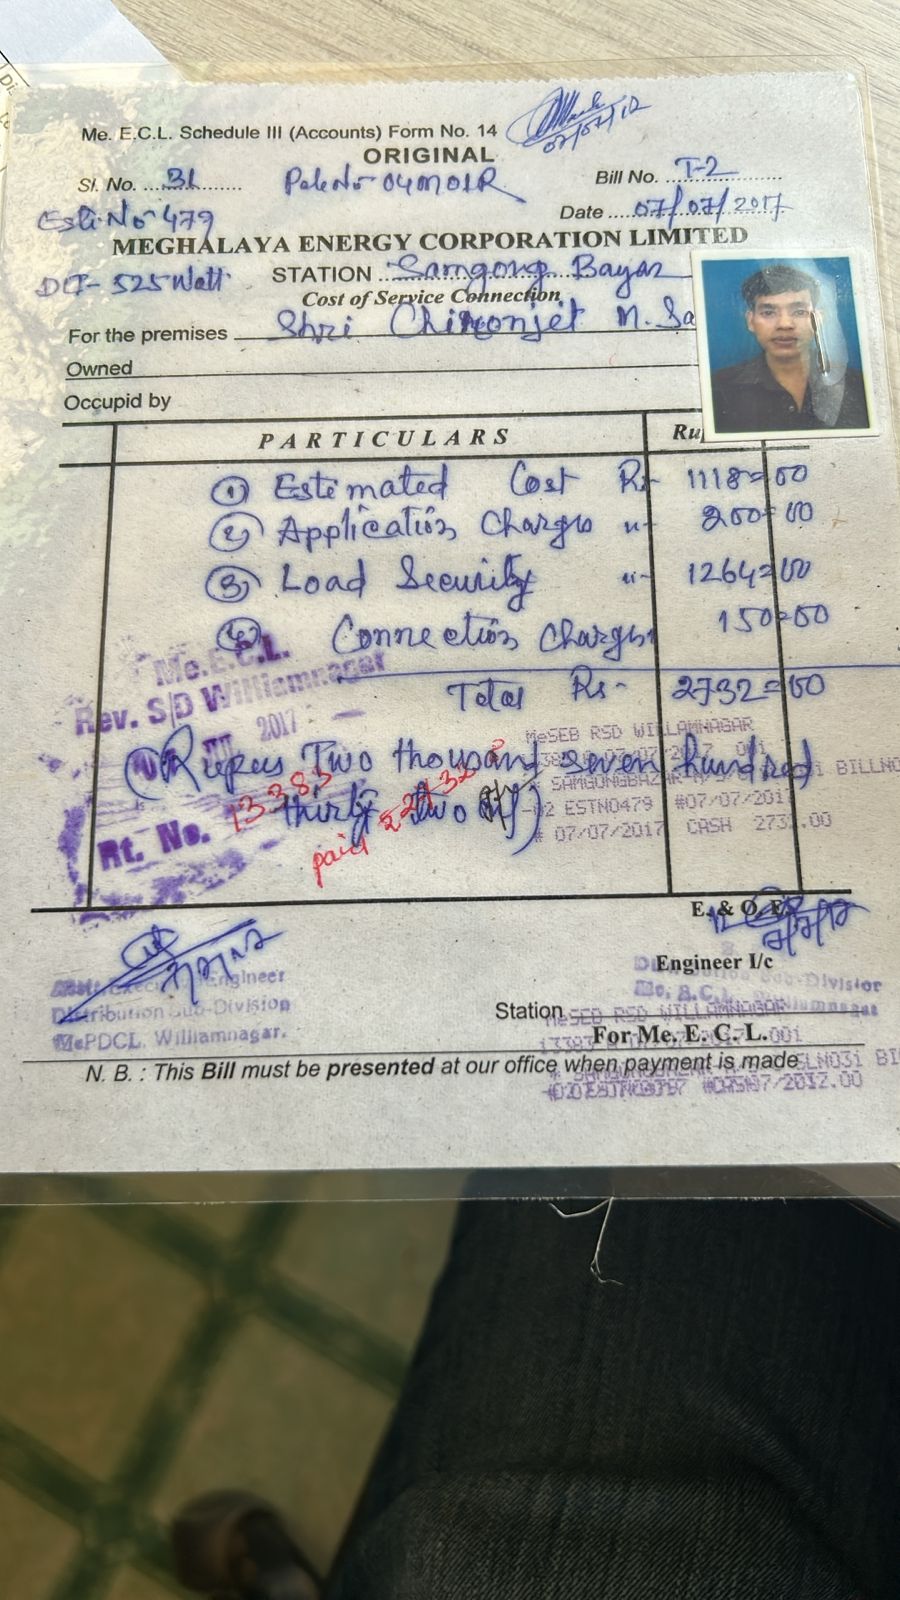 Me. E.C.L. Schedule III (Accounts) Form No. 14
07/07/17
ORIGINAL
Sl. No. 31 Pole No- 04M01R Bill No. T-2
Esti. No- 479 Date 07/07/2017
MEGHALAYA ENERGY CORPORATION LIMITED
525 Watt STATION Samgong Bazar
Cost of Service Connection
For the premises Shri Chironjet M. Sa
Owned
Occupid by
PARTICULARS Ru
① Estimated Cost Rs- 1118=00
② Application Charges "- 200=00
③ Load Security "- 1264=00
④ Connection Charges 150=00
Total Rs- 2732=00
Me.E.C.L.
Rev. S/D Williamnagar
2017
(Rupees Two thousand seven hundred
thirty two only)
Rt. No. 13383
paid
MeSEB RSD WILLAMNAGAR
07/07/2017 001
SAMGONGBAZAR BILLNO
ESTNO479 #07/07/201
# 07/07/2017 CASH 2732.00
E. & O. E.
Engineer I/c
Engineer
Distribution Sub-Division
MePDCL. Williamnagar.
Sub-Division
Station
MeSEB RSD WILLAMNAGAR
For Me. E. C. L.
N. B. : This Bill must be presented at our office when payment is made